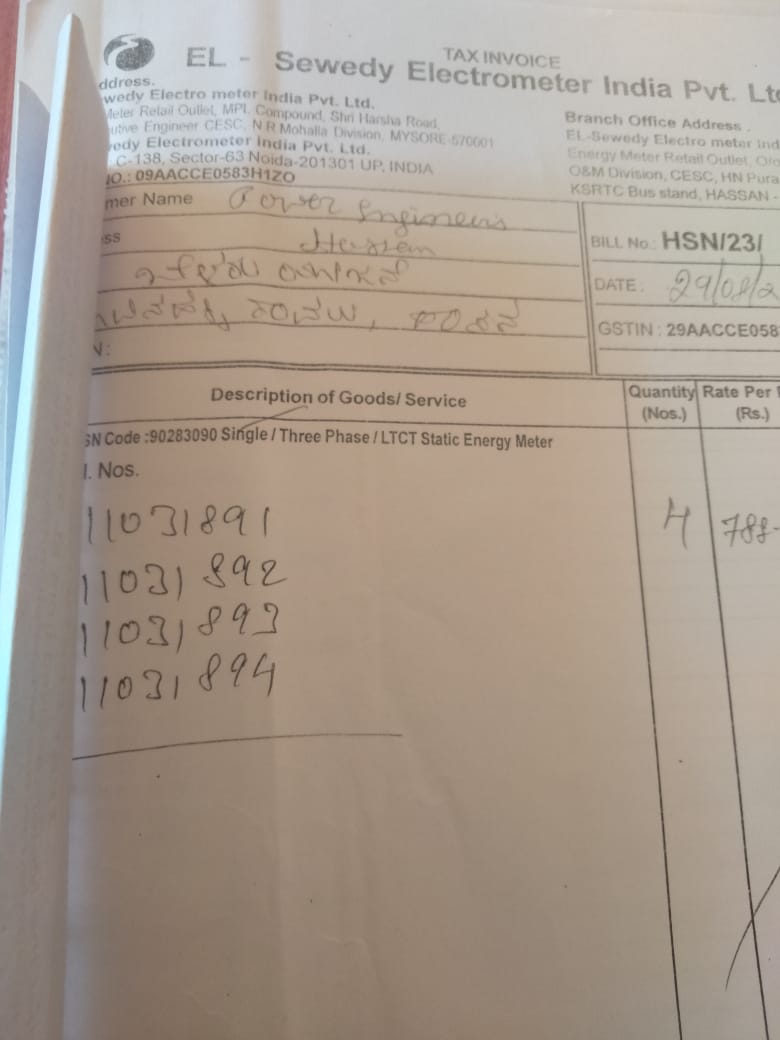 TAX INVOICE
EL - Sewedy Electrometer India Pvt. Ltd
ddress.
wedy Electro meter India Pvt. Ltd.
Meter Retail Outlet, MPL Compound, Shri Harsha Road,
utive Engineer CESC, N R Mohalla Division, MYSORE-570001
edy Electrometer India Pvt. Ltd.
C-138, Sector-63 Noida-201301 UP, INDIA
IO.: 09AACCE0583H1ZO
Branch Office Address .
EL-Sewedy Electro meter Ind
Energy Meter Retail Outlet,
O&M Division, CESC, HN Pura
KSRTC Bus stand, HASSAN -
mer Name Power Engineers
ss Hassan
BILL No.: HSN/23/
DATE : 29/08/2
GSTIN : 29AACCE058
N:
Description of Goods/ Service
Quantity (Nos.)
Rate Per
(Rs.)
SN Code :90283090 Single / Three Phase / LTCT Static Energy Meter
l. Nos.
11031891
4 788-
11031892
11031893
11031894